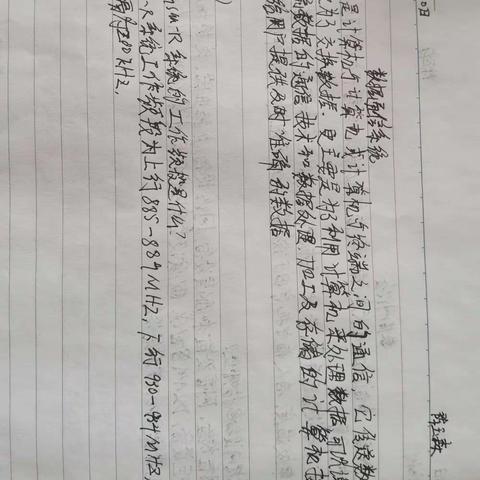 0日
数据通信系统
是计算机与计算机或计算机与终端之间的通信,它传送数
为了交换数据.更主要是为了利用计算机来处理数据可以说
数据的通信技术和数据处理.加工及存储的计算机技
给用户提供及时准确的数据
M-R系统的工作频段是什么?
R系统工作频段为上行885-889MHZ,下行930-934MHZ,
为200KHZ,